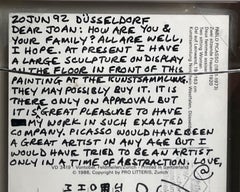 20 JUN 92 DÜSSELDORF
DEAR JOAN: HOW ARE YOU &
YOUR FAMILY? ALL ARE WELL,
I HOPE. AT PRESENT I HAVE
A LARGE SCULPTURE ON DISPLAY
ON THE FLOOR IN FRONT OF THIS
PAINTING AT THE KUNSTSAMMLUNG.
THEY MAY POSSIBLY BUY IT. IT IS
THERE ONLY ON APPROVAL BUT
IT IS GREAT PLEASURE TO HAVE
MY WORK IN SUCH EXALTED
COMPANY. PICASSO WOULD HAVE BEEN
A GREAT ARTIST IN ANY AGE BUT I
WOULD HAVE TRIED TO BE AN ARTIST
ONLY IN A TIME OF ABSTRACTION. LOVE,
© 1986, Copyright by PRO LITTERIS, Zürich
PABLO PICASSO (1881-1973)